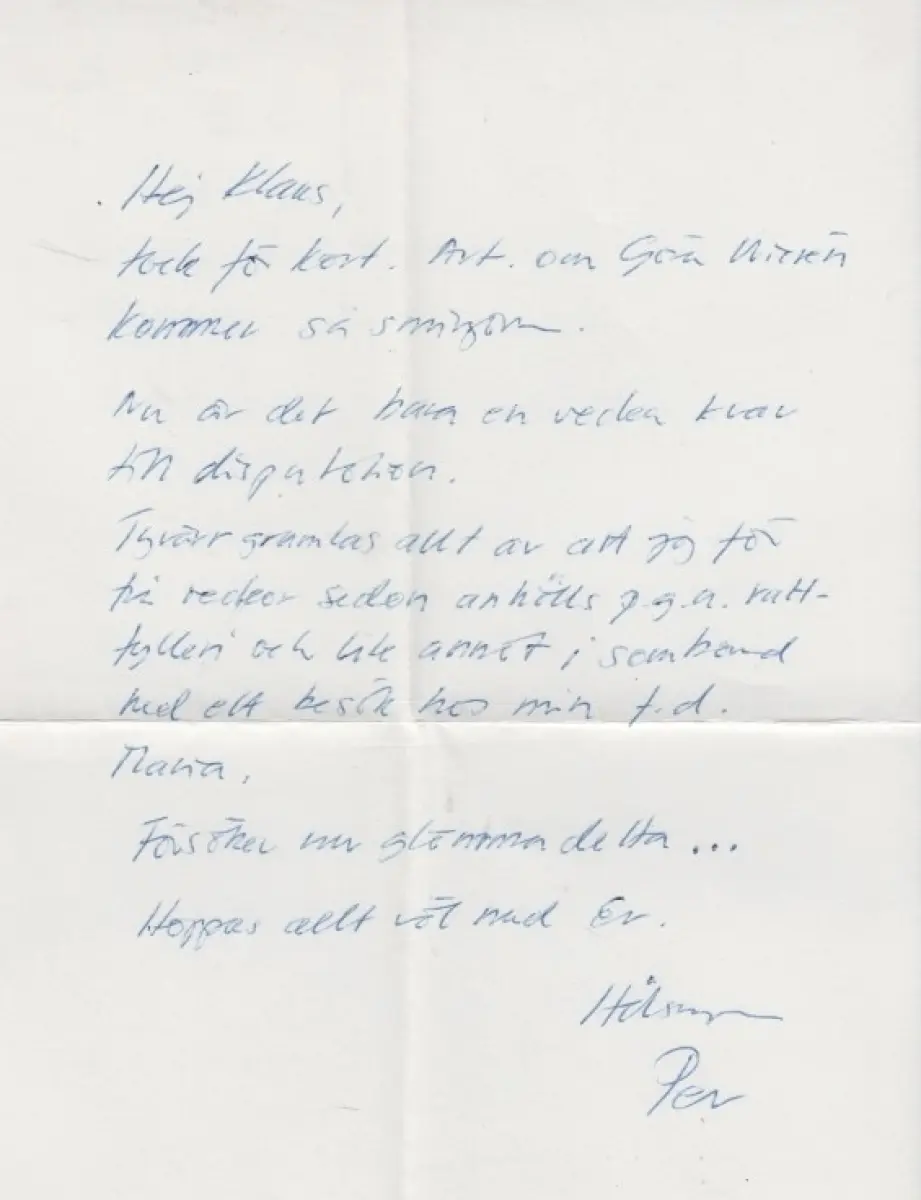 Hej Klaus,
tack för kort. Art. om Göra
kommer så småningom.
Nu är det bara en vecka kvar
till disputation.
Tyvärr grumlas allt av att jag för
två veckor sedan anhölls p.g.a. ratt-
fylleri och lite annat i samband
med ett besök hos min f.d.
Maria.
Försöker nu glömma detta...
Hoppas allt väl med Er.
Hälsningar
Per